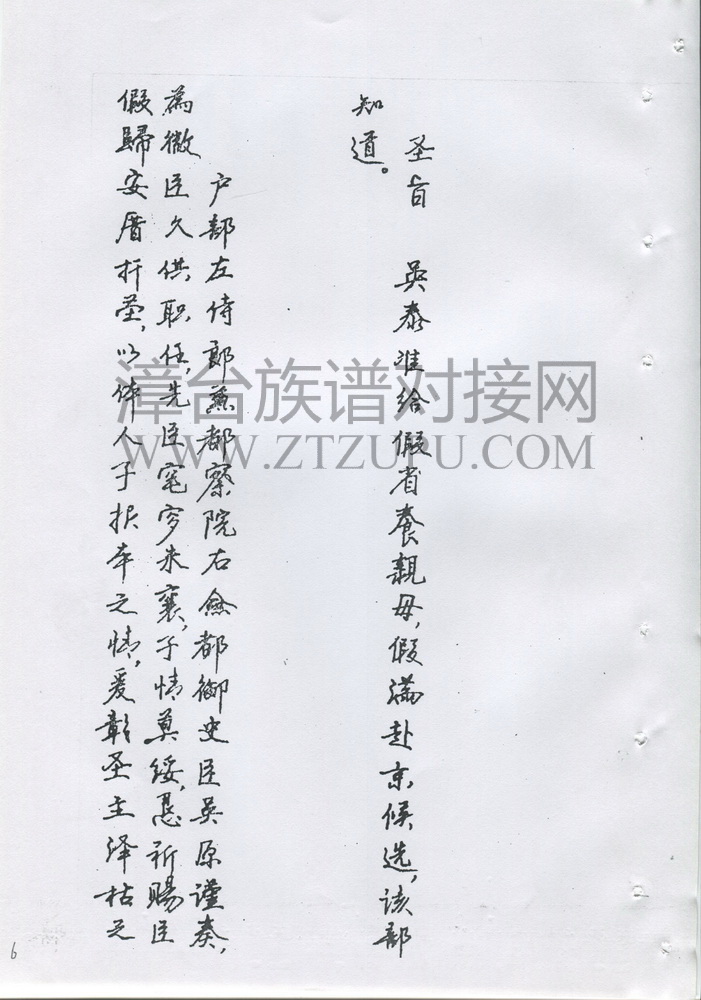 圣旨 吳泰准给假省養親母，假滿赴京候选，该部
知道。
户部左侍郎兼都察院右僉都御史臣吳原谨奏，
為微臣久供职任，先臣窀穸未襄，子情莫绥，恳祈賜臣
假歸安厝扦莹，以体人子报本之情，爰彰圣主泽枯之
漳台族谱对接网
WWW.ZTZUPU.COM
6